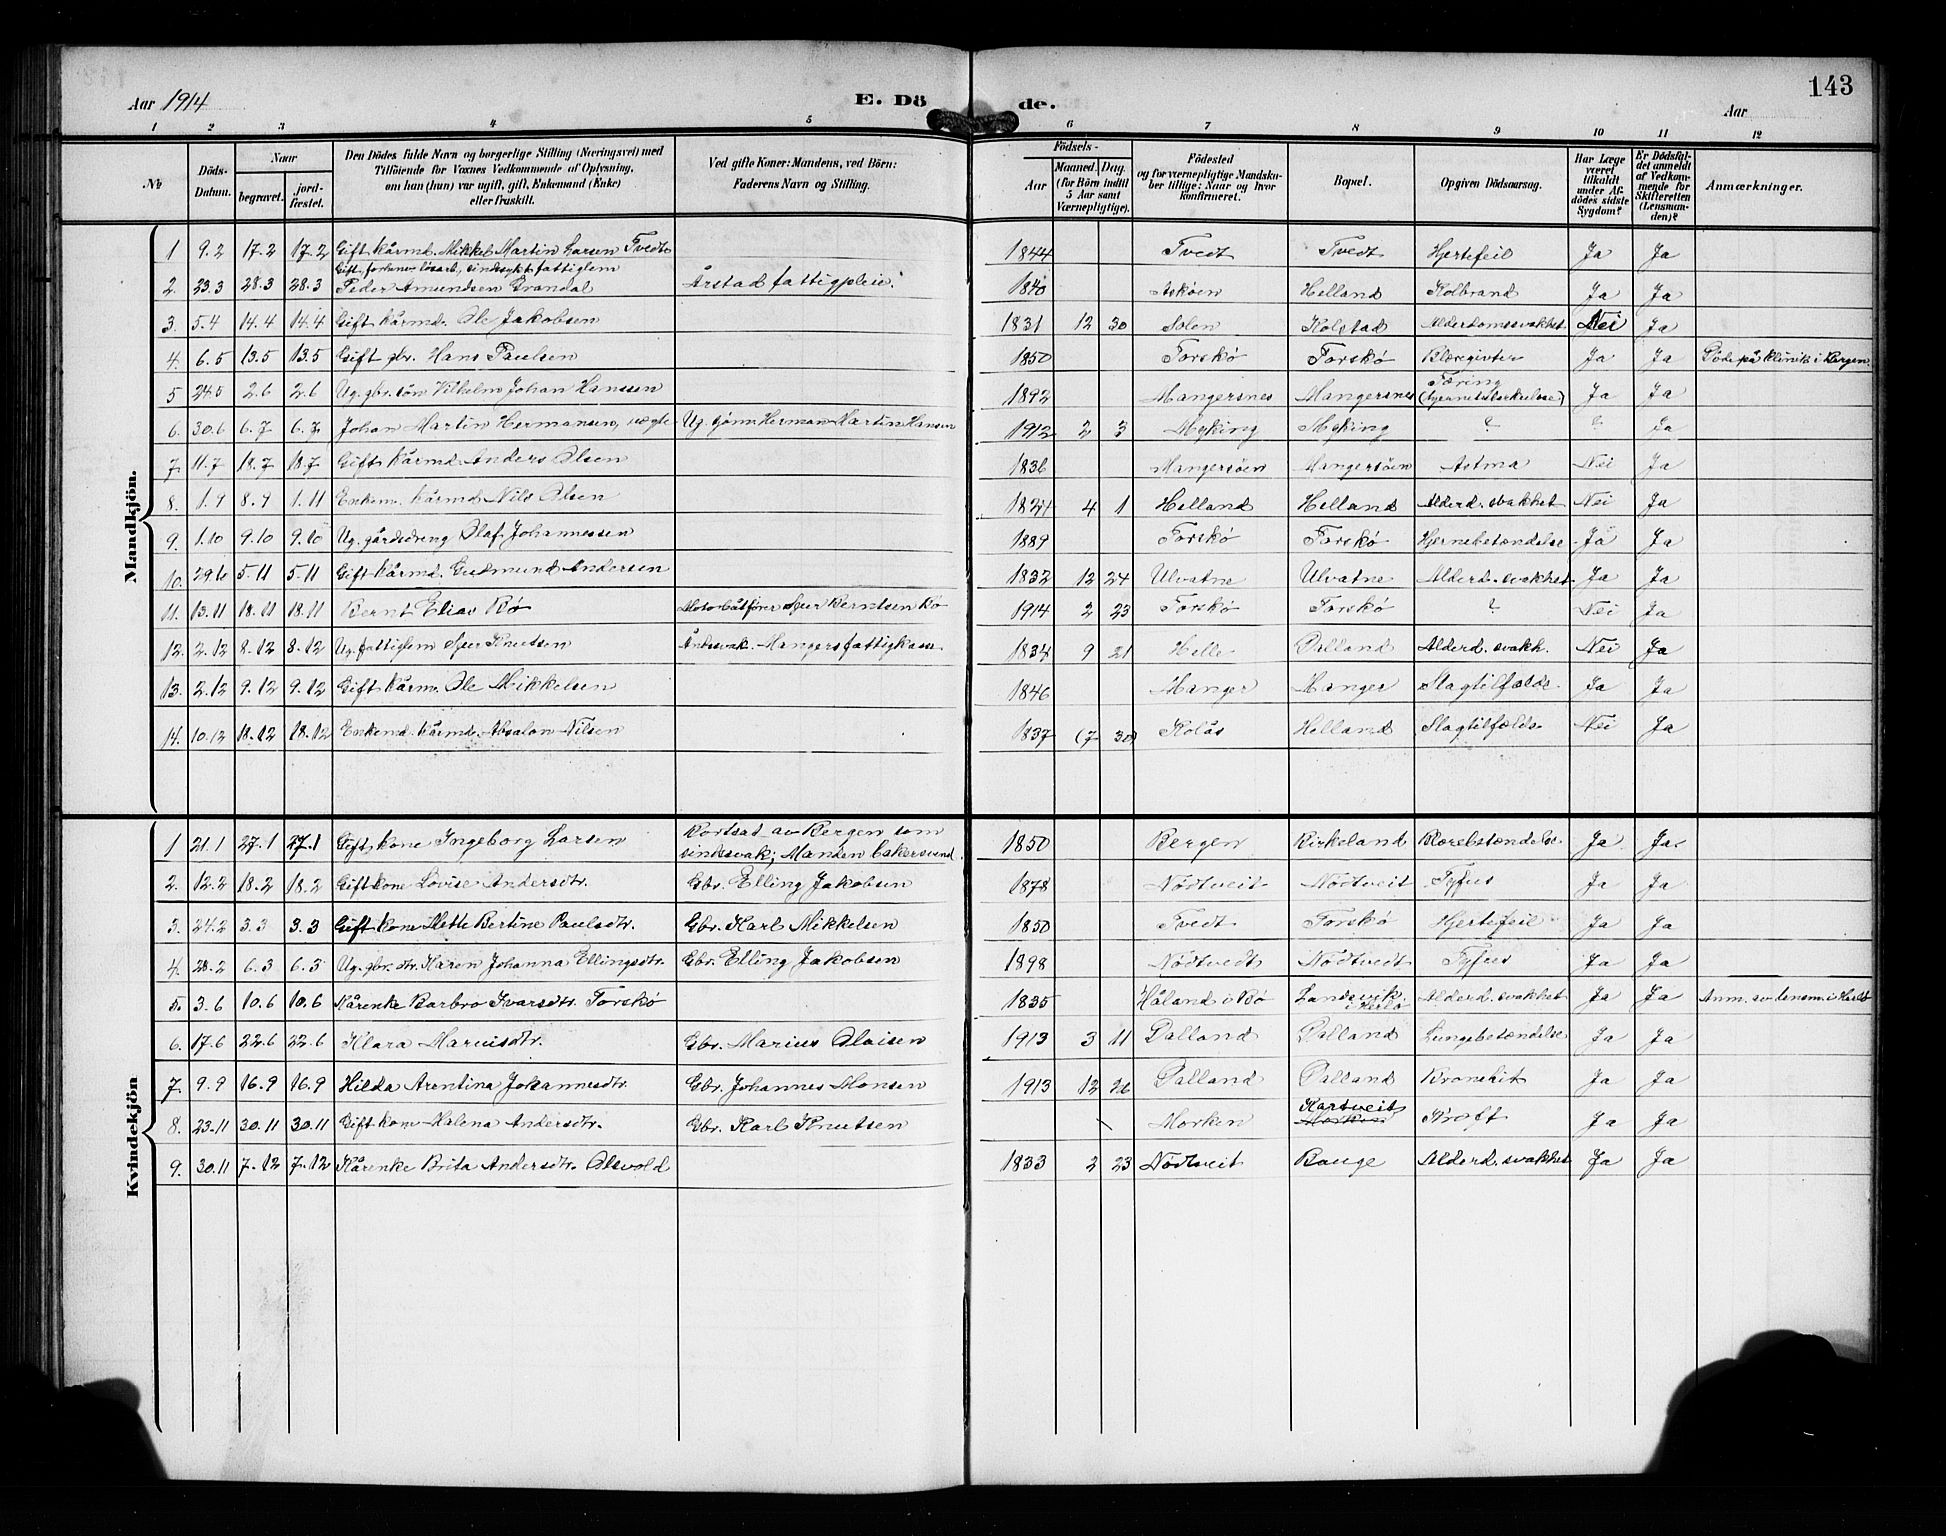 143
Aar 1914 E. Dö de. Aar
1 2 3 4 5 6 7 8 9 10 11 12
No
Döds-Datum.
Naar
begravet. jord-fæstet.
Den Dödes fulde Navn og borgerlige Stilling (Næringsvei) med
Tilföiende for Voxnes Vedkommende af Oplysning,
om han (hun) var ugift, gift, Enkemand (Enke)
eller fraskilt.
Ved gifte Koner: Mandens, ved Börn:
Faderens Navn og Stilling.
Födsels-
Aar Maaned. Dag.
(for Börn indtil 5 Aar samt Værnepligtige).
Födested
og for værnepligtige Mandsku-
ber tillige: Naar og hvor
konfirmeret.
Bopæl.
Opgiven Dödsaarsag.
Har Læge været tilkaldt under Afdödes sidste Sygdom?
Er Dödsfaldet anmeldt af Vedkommende for Skifteretten (Lensmanden)?
Anmærkninger.
Mandkjön.
1 9.2 17.2 17.2 Gift kårmd. Mikkel Martin Larsen Tvedt 1844 Tvedt Tvedt Hjertefeil Ja Ja
Gift, forhenv. løsarb., sindssykt fattiglem
2. 23.3 28.3 28.3 Peder Amundsen Grandal Årstad fattigpleie. 1840 Askøen Helland Kolbrand Ja Ja
3. 5.4 14.4 14.4 Gift kårmd. Ole Jakobsen 1831 12 30 Solen Kolstad Alderdomssvakhet Nei Ja
4. 6.5 13.5 13.5 Gift gbr. Hans Paulsen 1850 Torskø Torskø Blæregivter Ja Ja Døde på klinik i Bergen
5 24.5 2.6 2.6 Ug. gbr. søn Vilhelm Johan Hanssen 1892 Mangersnes Mangersnes Tæring (hjernetuberkulose) Ja Ja
6. 30.6 6.7 6.7 Johan Martin Hermansen, uegte Ug. Herman Martin Hansen 1912 2 3 Myking Myking ? ? Ja
7. 11.7 18.7 18.7 Gift kårmd. Anders Olsen 1836 Mangersöen Mangersöen Astma Nei Ja
8. 1.9 8.9 1.11 Enkem. kårmd Nils Olsen 4 1 Helland Helland Alderd. svakhet Nei Ja
9. 1.10 9.10 9.10 Ug. gårdsdreng Olaf Johannessen 1889 Torskø Torskø Hjernebetændelse Ja Ja
10. 29.10 5.11 5.11 Gift kårmd. Gudmund Andersen 1832 12 24 Ulvatne Ulvatne Alderd. svakhet Ja Ja
11. 13.11 18.11 18.11 Bernt Elias Bø Motorbåtfører Sjur Berntsen Bø 1914 2 23 Torskø Torskø ? Nei Ja
12. 2.12 8.12 8.12 Ug. fattiglem Sjur Knutsen Åndssvak. Mangers fattigkasse 1834 9 21 Helle Dalland Alderd. svakh. Nei Ja
13. 2.12 9.12 9.12 Gift kårm. Ole Mikkelsen 1846 Manger Manger Slagtilfælde Ja Ja
14. 10.12 18.12 18.12 Enkemd. kårmd. Absalon Nilsen 1837 (7 30) Kolås Helland Slagtilfælde Nei Ja
Kvindekjön
1 21.1 27.1 27.1 Gift kone Ingeborg Larsen Bortsat av Bergen som
sindssvak; Manden bakersvend. 1850 Bergen Birkeland Blærebetændelse Ja Ja
2. 12.2 18.2 18.2 Gift kone Lovise Andersdtr. Gbr. Elling Jakobsen 1878 Nödtveit Nödtveit Tyfus Ja Ja
3. 24.2 3.3 3.3 Gift kone Mette Bertine Paulsdtr. Gbr. Karl Mikkelsen 1850 Tvedt Torskø Hjertefeil Ja Ja
4. 28.2 6.3 6.3 Ug. gbr. dtr. Karen Johanna Ellingsdtr. Gbr. Elling Jakobsen 1898 Nödtvedt Nödtvedt Tyfus Ja Ja
5. 3.6 10.6 10.6 Kårenke Barbro Ivarsdtr. Torskø 1835 Håland i Bø Landsvik i Herlø Alderd. svakhet Ja Ja Anm. av lensm. i Herlø
6. 17.6 22.6 22.6 Klara Mariusdtr. Gbr. Marius Olaisen 1913 3 11 Dalland Dalland Lungebetændelse Ja Ja
7. 9.9 16.9 16.9 Hilda Arentina Johannesdtr. Gbr. Johannes Monsen 1913 12 26 Dalland Dalland Bronchit Ja Ja
8. 23.11 30.11 30.11 Gift kone Malena Andersdtr. Gbr. Karl Knutsen Morken Kartveit Morken Kræft Ja Ja
9. 30.11 7.12 7.12 Kårenke Brita Andersdtr. Olsvold 1833 2 23 Nödtveit Bauge Alderd. svakhet Ja Ja